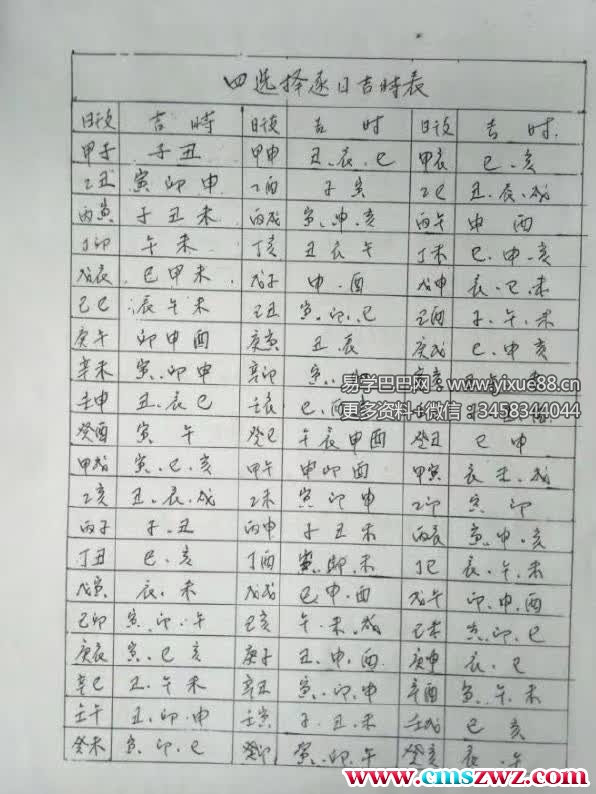 四选择逐日吉時表
日设 吉 時 日设 吉 时 日设 吉 时
甲子 子丑 甲申 丑、辰、巳 甲辰 巳、亥
乙丑 寅卯申 乙酉 子寅 乙巳 丑、辰、戌
丙寅 子丑未 丙戌 寅、申、亥 丙午 申 酉
丁卯 午未 丁亥 丑辰午 丁未 巳、申、亥
戊辰 巳甲未 戊子 申、酉 戊申 辰、巳、未
己巳 辰午未 己丑 寅、卯、巳 己酉 子、午、未
庚午 卯申酉 庚寅 丑、辰 庚戌 巳、申亥
辛未 寅、卯申 辛卯 寅
壬申 丑、辰巳 壬辰 巳
癸酉 寅 午 癸巳 午辰申酉 癸丑 巳申
甲戌 寅、巳、亥 甲午 申卯酉 甲寅 辰 戌
乙亥 丑、辰、戌 乙未 寅卯申 乙卯 寅 卯
丙子 子、丑 丙申 子丑未 丙辰 寅、申、亥
丁丑 巳、亥 丁酉 寅、卯、未 丁巳 辰、午、未
戊寅 辰、未 戊戌 巳、申、酉 戊午 卯、申、酉
己卯 寅、卯、午 己亥 午、未、戌 己未 寅、卯、巳
庚辰 寅、巳亥 庚子 丑、申、酉 庚申 辰、巳
辛巳 丑、午未 辛丑 寅、卯、申 辛酉 寅、午、未
壬午 丑、卯、申 壬寅 子、丑、未 壬戌 巳 亥
癸未 寅、卯、巳 癸卯 寅、卯、午 癸亥 辰、午
易学巴巴网：www.yixue88.cn
更多资料+微信：3458344044
www.cmszwz.com